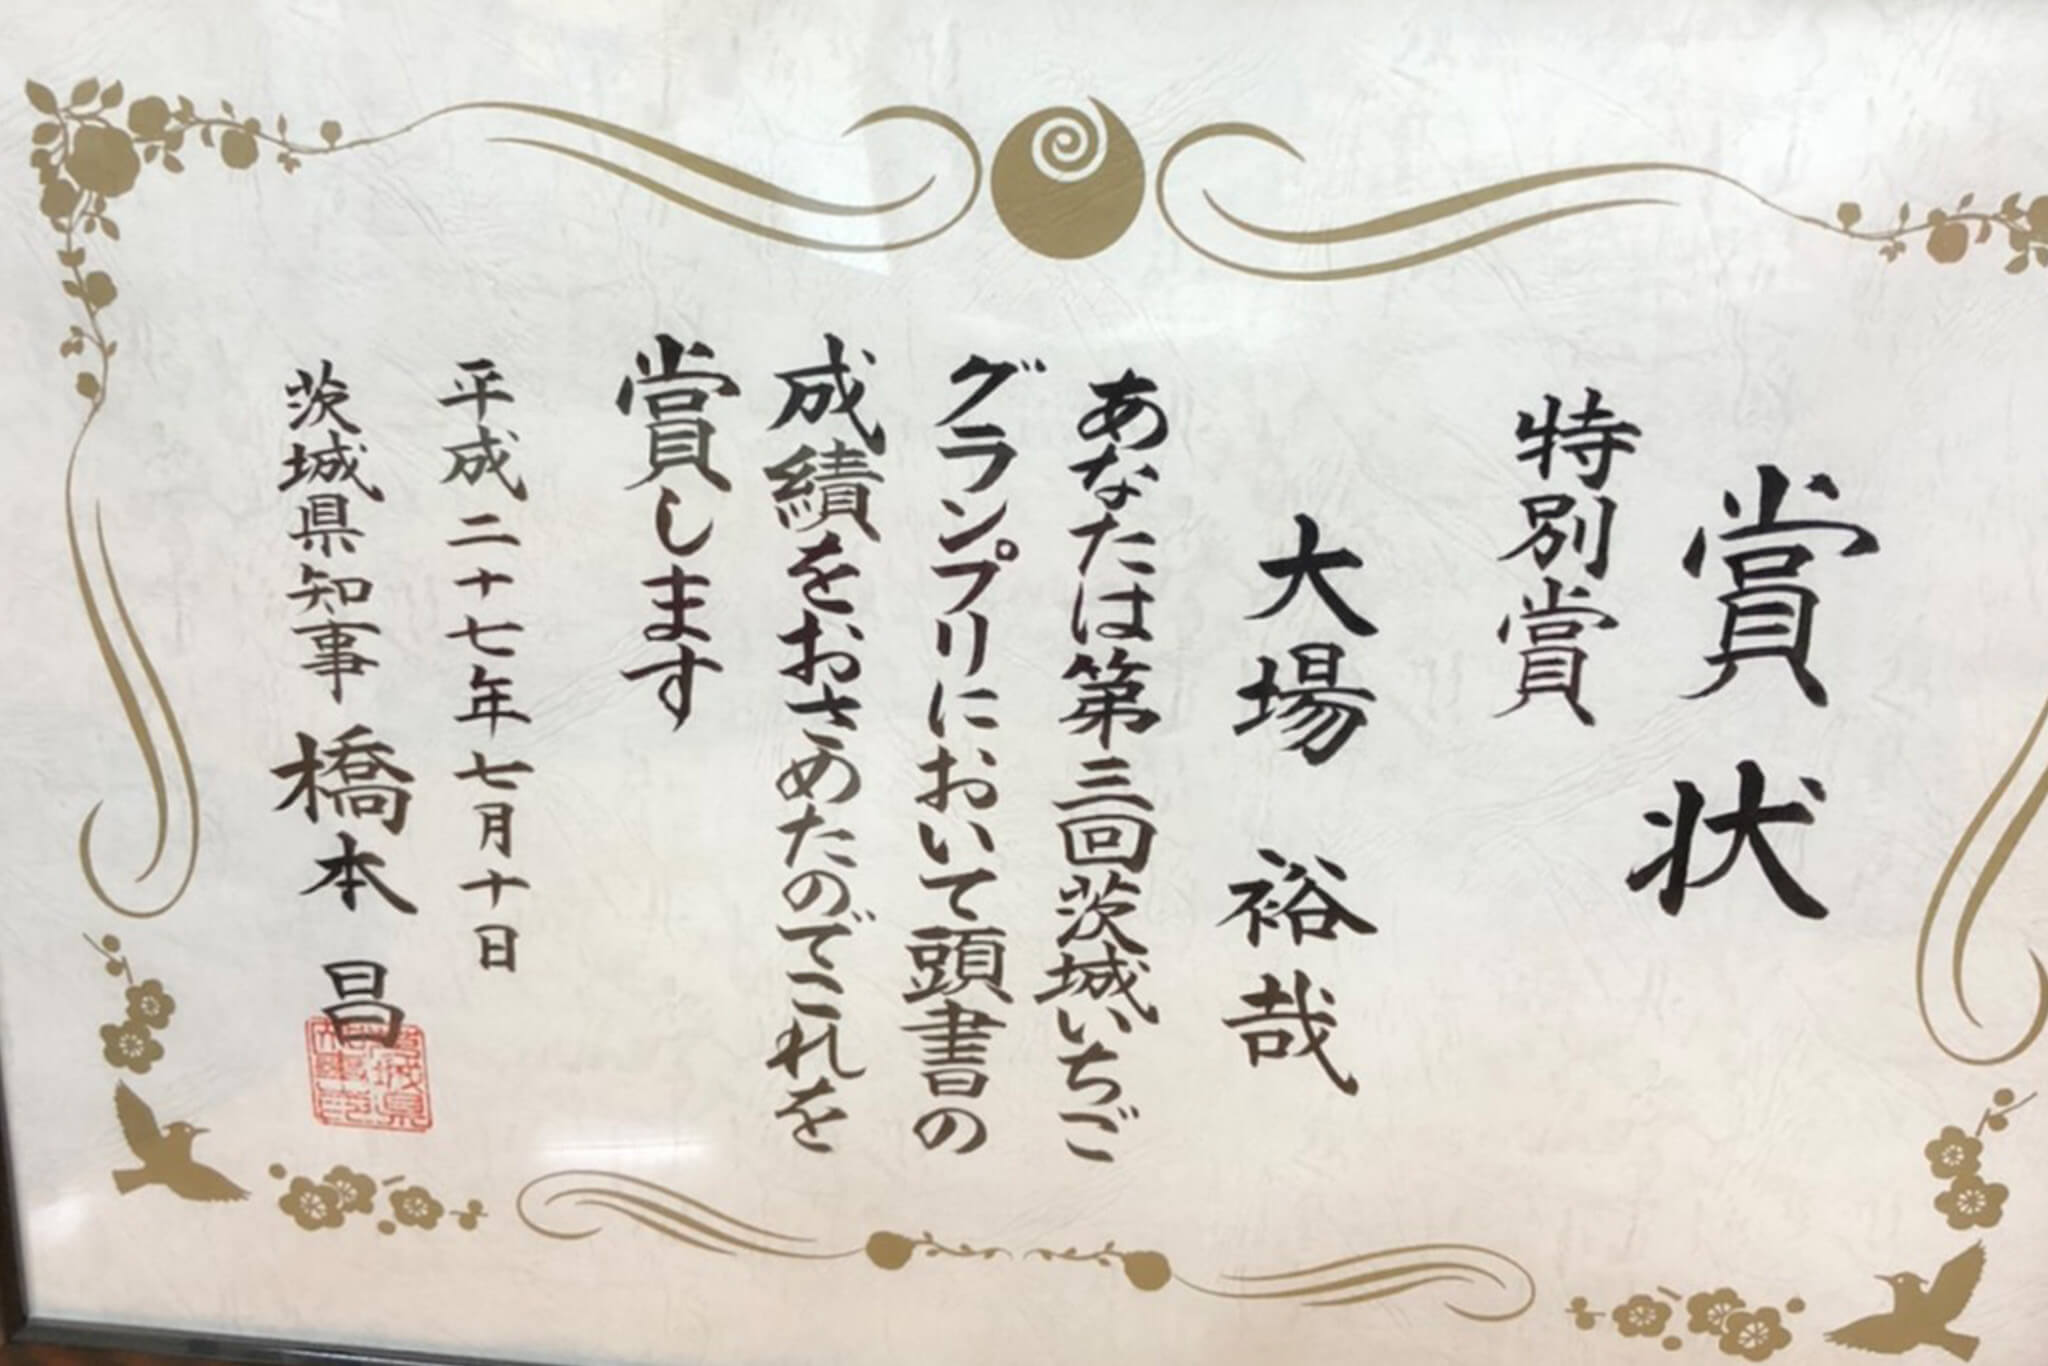 賞状
特別賞
大場 裕哉
あなたは第三回茨城いちご
グランプリにおいて頭書の
成績をおさめたのでこれを
賞します
平成二十七年七月十日
茨城県知事 橋本 昌